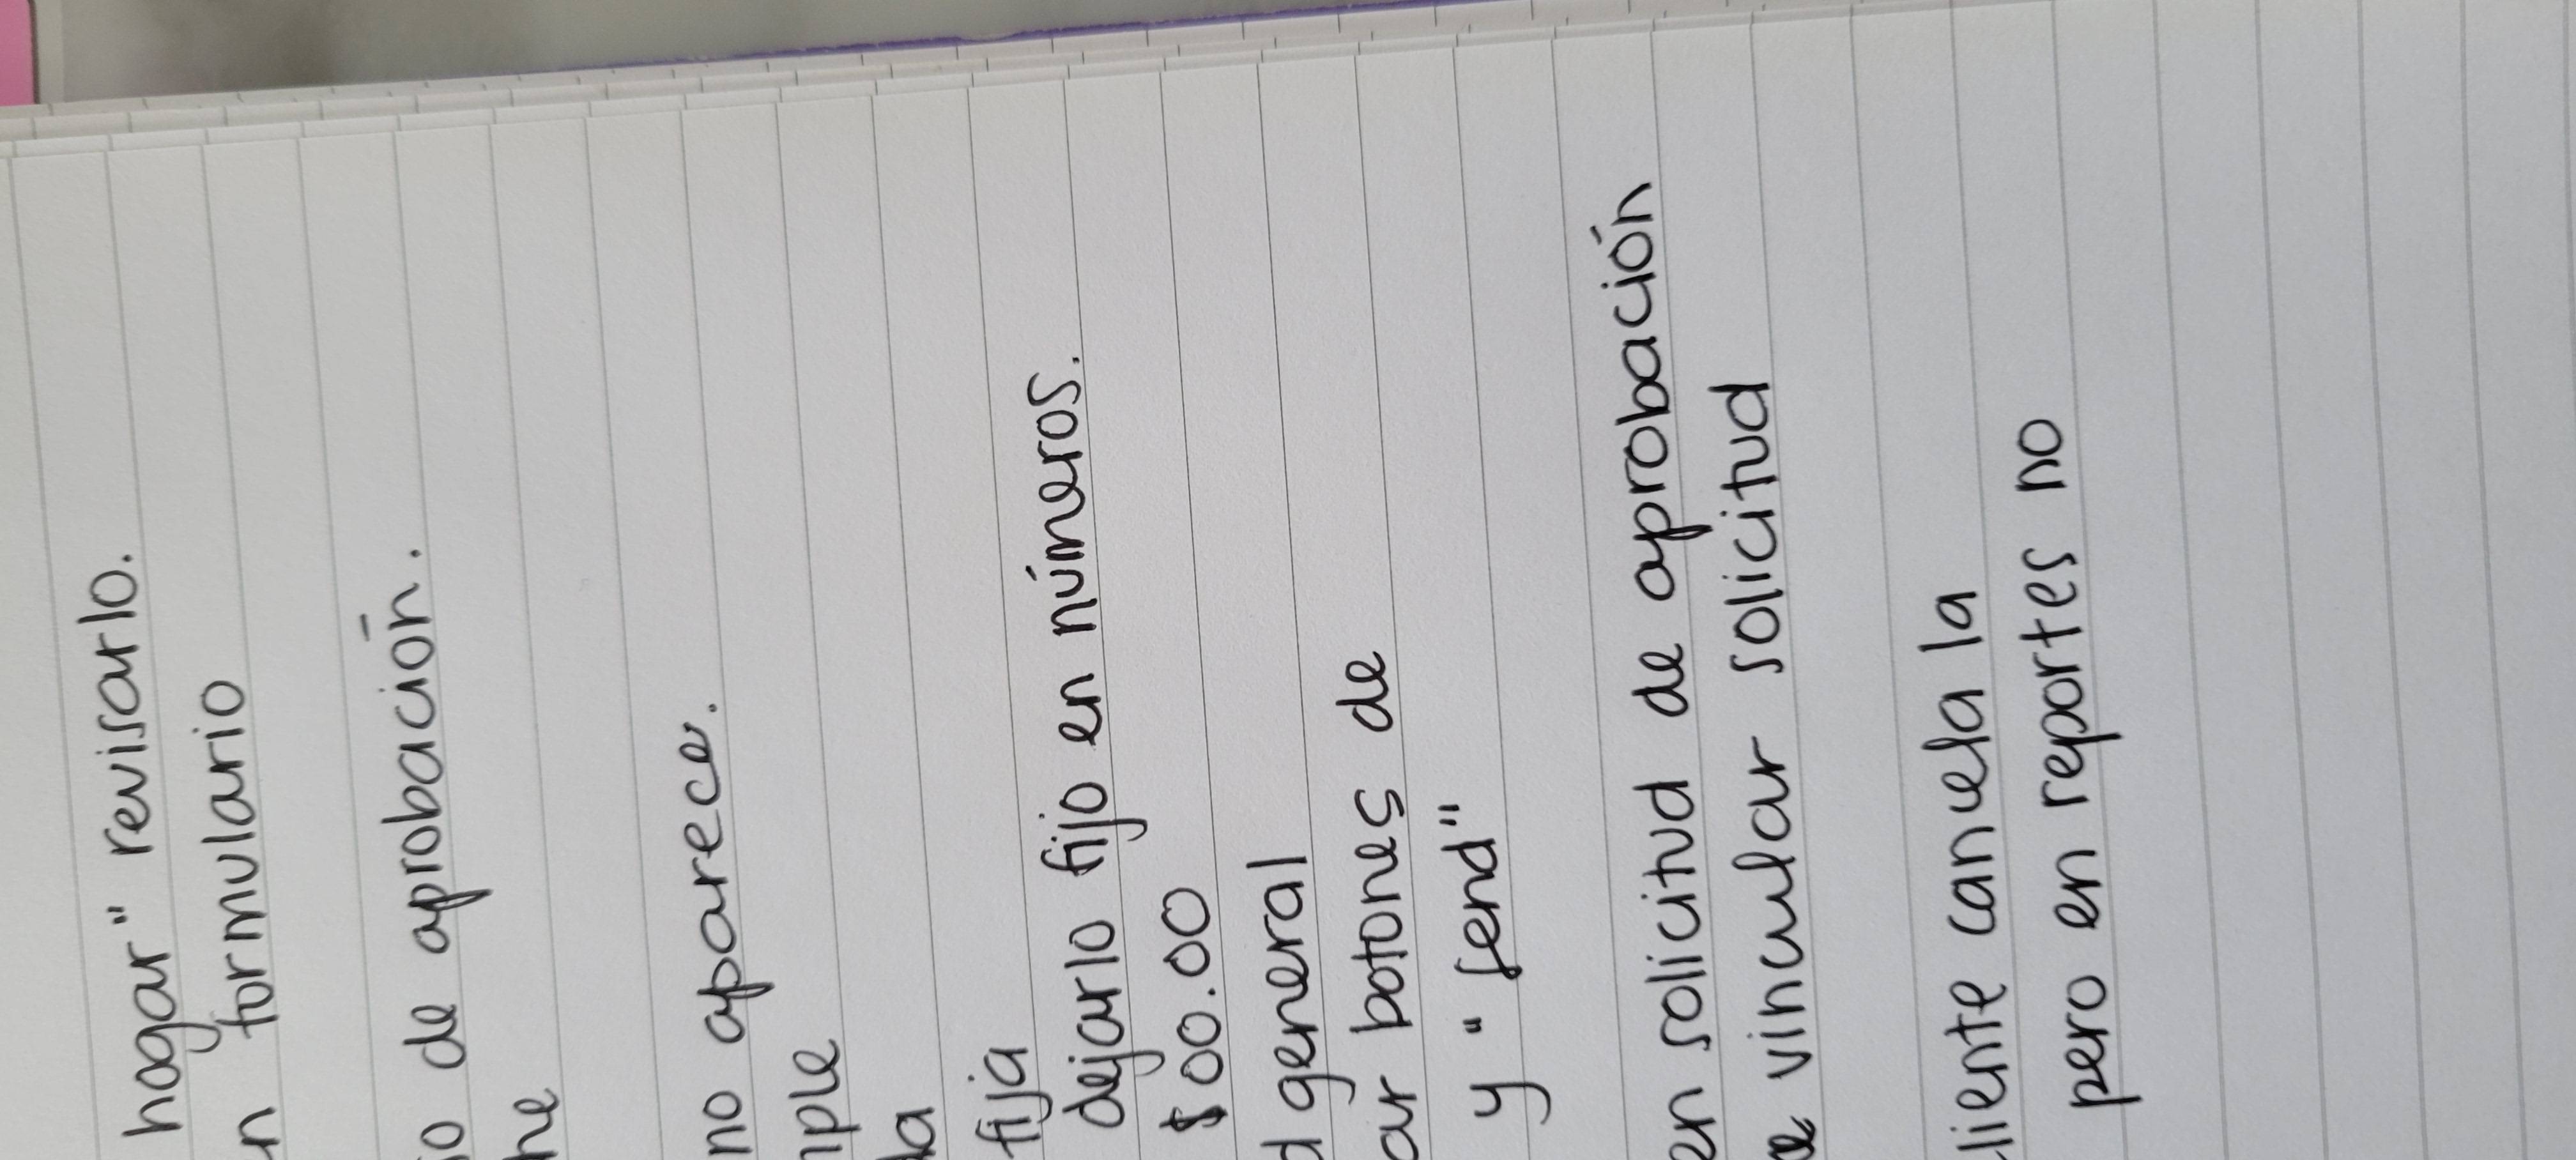 hogar" revisarlo.
n formulario
o de aprobación.
he
no aparece.
nple
da
fija
dejarlo fijo en números.
$00.00
d general
ar botones de
y "send"
en solicitud de aprobación
vincular solicitud
liente canvela la
pero en reportes no